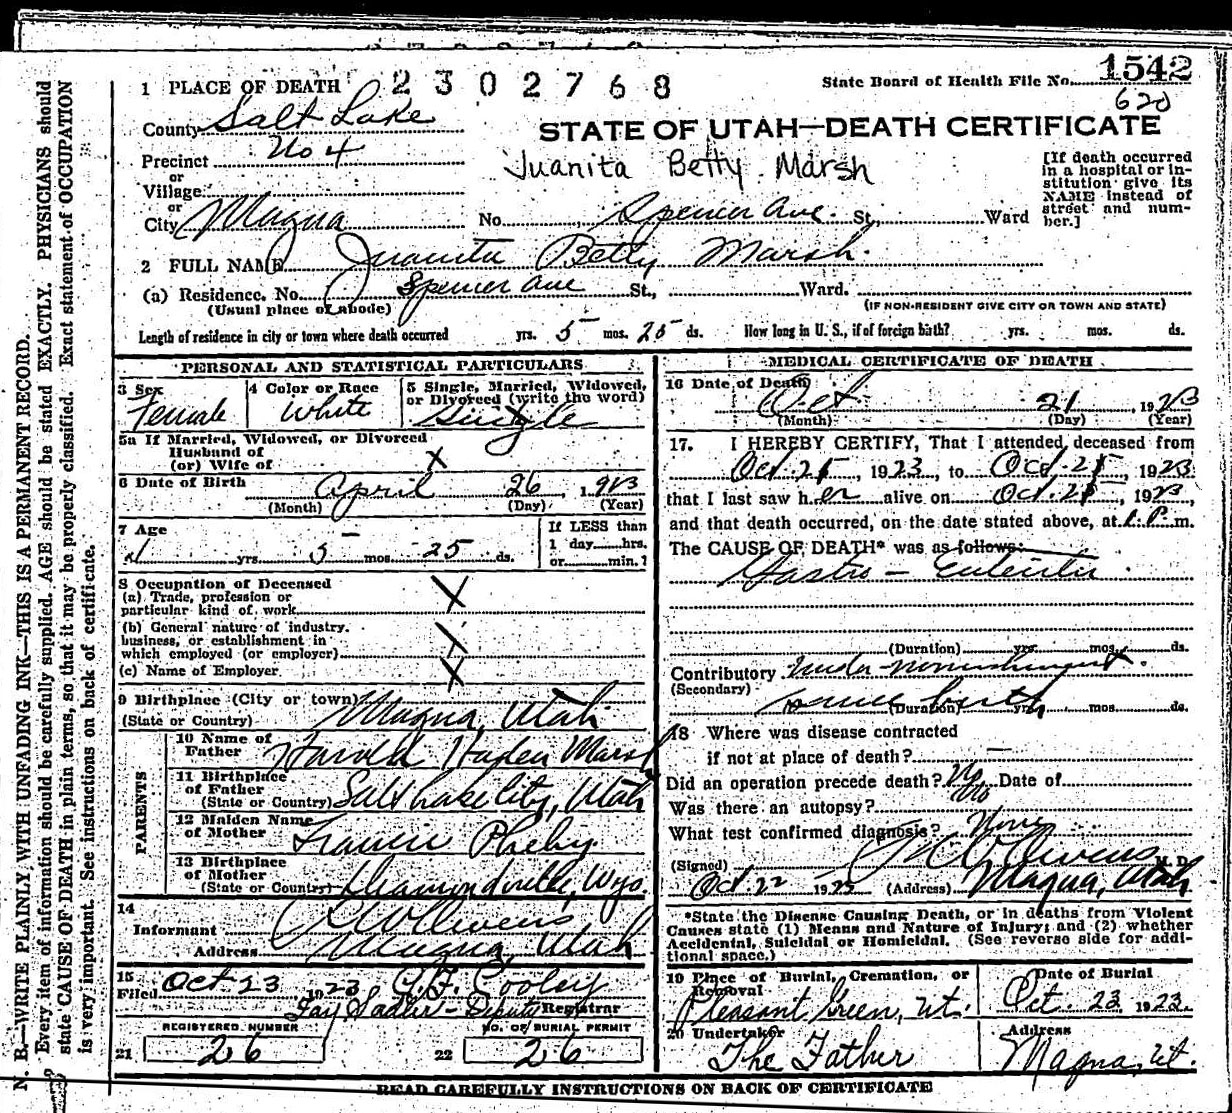 1542
1 PLACE OF DEATH 2302768 State Board of Health File No.
620
County Salt Lake
STATE OF UTAH—DEATH CERTIFICATE
Precinct No 4
Juanita Betty Marsh
or
Village
or
City Magna No. Spencer Ave. St. Ward
[If death occurred
in a hospital or in-
stitution give its
NAME instead of
street and num-
ber.]
2 FULL NAME Juanita Betty Marsh.
(a) Residence. No. Spencer Ave St., Ward.
(Usual place of abode) (IF NON-RESIDENT GIVE CITY OR TOWN AND STATE)
Length of residence in city or town where death occurred yrs. 5 mos. 25 ds. How long in U. S., if of foreign birth? yrs. mos. ds.
N. B.—WRITE PLAINLY, WITH UNFADING INK—THIS IS A PERMANENT RECORD.
Every item of information should be carefully supplied. AGE should be stated EXACTLY. PHYSICIANS should
state CAUSE OF DEATH in plain terms, so that it may be properly classified. Exact statement of OCCUPATION
is very important. See instructions on back of certificate.
PERSONAL AND STATISTICAL PARTICULARS
3 Sex 4 Color or Race 5 Single, Married, Widowed,
or Divorced (write the word)
Female White Single
5a If Married, Widowed, or Divorced
Husband of
(or) Wife of X
6 Date of Birth April 26, 1923
(Month) (Day) (Year)
7 Age If LESS than
yrs. 5 mos. 25 ds. 1 day hrs.
or min.?
8 Occupation of Deceased
(a) Trade, profession or
particular kind of work X
(b) General nature of industry,
business, or establishment in
which employed (or employer) X
(c) Name of Employer X
9 Birthplace (City or town)
(State or Country) Magna, Utah
PARENTS
10 Name of
Father Harold Hayden Marsh
11 Birthplace
of Father
(State or Country) Salt Lake City, Utah
12 Maiden Name
of Mother
13 Birthplace
of Mother
(State or Country) Diamondville, Wyo.
14
Informant
Address Magna, Utah
15
Filed Oct 23 1923
Fay Sadler - Deputy Registrar
REGISTERED NUMBER NO. OF BURIAL PERMIT
21 26 22 26
MEDICAL CERTIFICATE OF DEATH
16 Date of Death Oct 21, 1923
(Month) (Day) (Year)
17. I HEREBY CERTIFY, That I attended deceased from
Oct. 21, 1923, to Oct. 21, 1923
that I last saw her alive on Oct. 21, 1923,
and that death occurred, on the date stated above, at 1. P. m.
The CAUSE OF DEATH* was as follows:
Gastro-Enteritis.
(Duration) yrs. mos. ds.
Contributory Under-nourishment
(Secondary)
(Duration) yrs. mos. ds.
18 Where was disease contracted
if not at place of death? —
Did an operation precede death? No Date of
Was there an autopsy? No
What test confirmed diagnosis? None
(Signed) M. D.
Oct 22 1923 (Address) Magna, Utah
*State the Disease Causing Death, or in deaths from Violent
Causes state (1) Means and Nature of Injury; and (2) whether
Accidental, Suicidal or Homicidal. (See reverse side for addi-
tional space.)
19 Place of Burial, Cremation, or
Removal Date of Burial
Pleasant Green, Ut. Oct. 23 1923.
20 Undertaker Address
The Father Magna, Ut.
READ CAREFULLY INSTRUCTIONS ON BACK OF CERTIFICATE